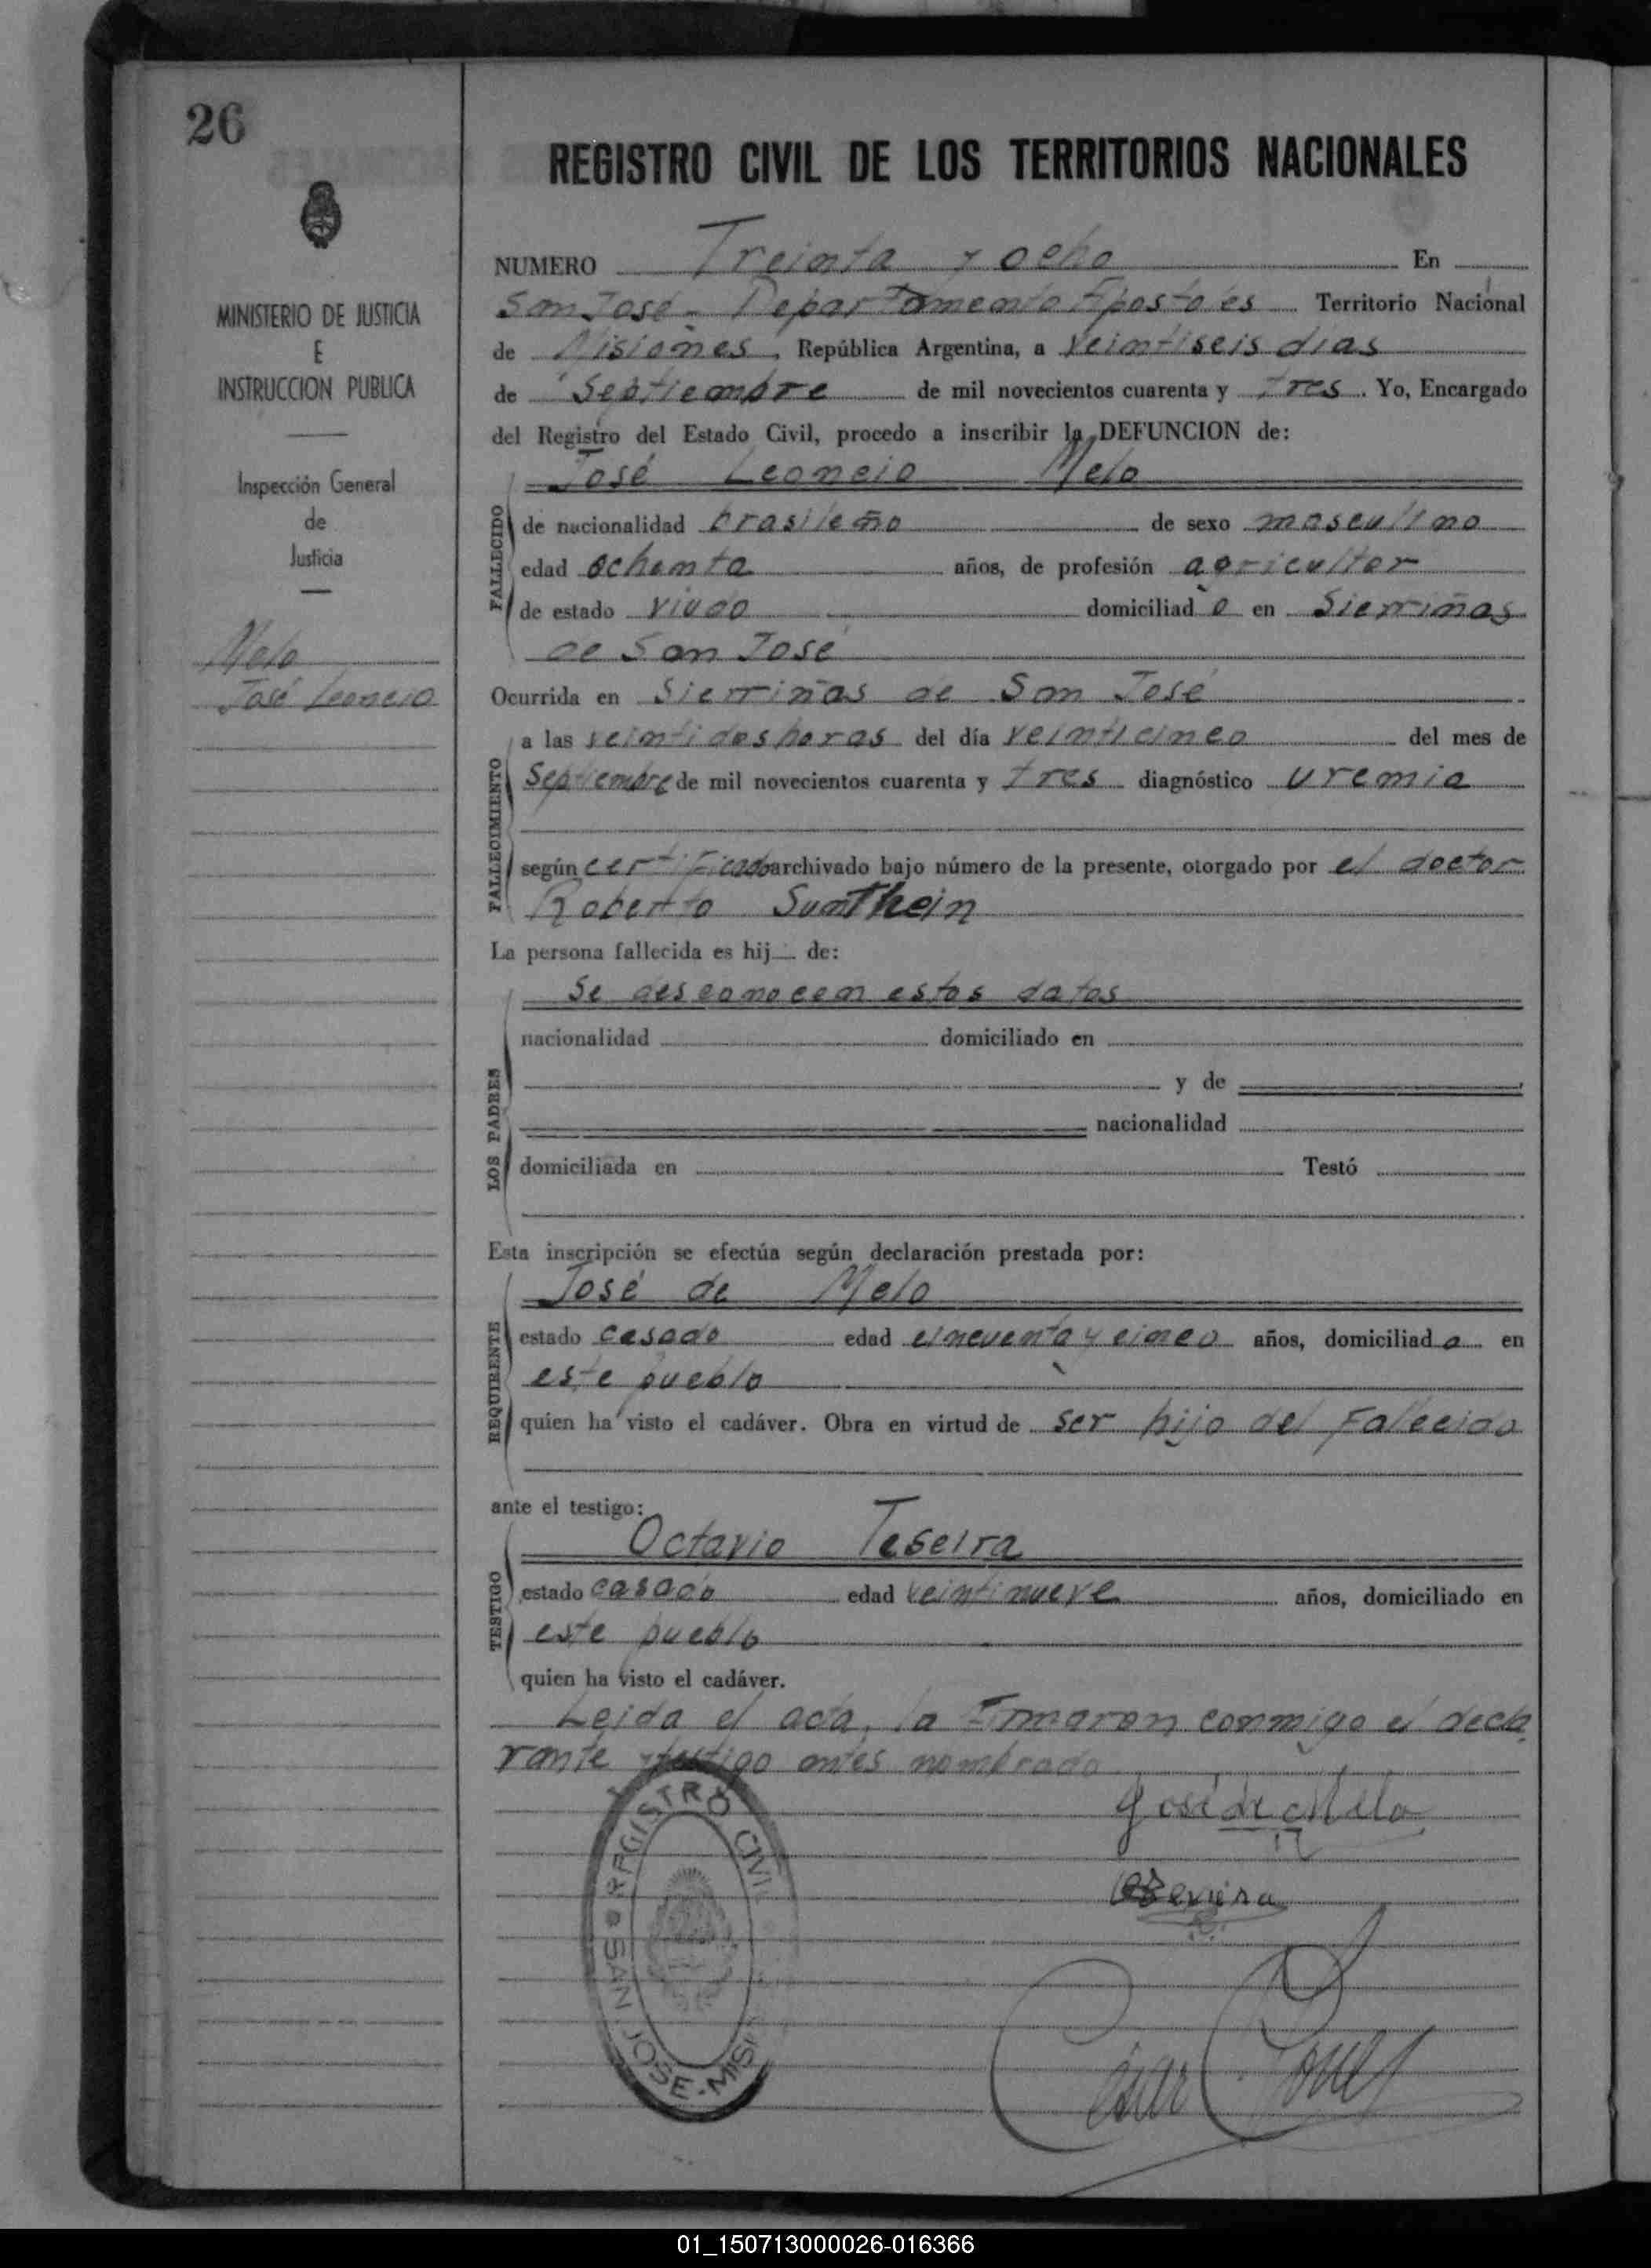 26
REGISTRO CIVIL DE LOS TERRITORIOS NACIONALES
MINISTERIO DE JUSTICIA
E
INSTRUCCION PUBLICA
Inspección General
de
Justicia
Melo
José Leoncio
NUMERO Treinta y ocho En
San José - Departamento Apostoles Territorio Nacional
de Misiones, República Argentina, a veintiseis dias
de Septiembre de mil novecientos cuarenta y tres. Yo, Encargado
del Registro del Estado Civil, procedo a inscribir la DEFUNCION de:
José Leoncio Melo
FALLECIDO
de nacionalidad brasileño de sexo masculino
edad ochenta años, de profesión agricultor
de estado viudo domiciliado en Sierriñas
de San José
Ocurrida en Sierriñas de San José
FALLECIMIENTO
a las veintidos horas del día veinticinco del mes de
Septiembre de mil novecientos cuarenta y tres diagnóstico uremia
según certificado archivado bajo número de la presente, otorgado por el doctor
Roberto Sumthein
La persona fallecida es hij de:
LOS PADRES
Se desconocen estos datos
nacionalidad domiciliado en
y de
nacionalidad
domiciliada en Testó
Esta inscripción se efectúa según declaración prestada por:
REQUIRENTE
José de Melo
estado casado edad cincuenta y cinco años, domiciliado en
este pueblo
quien ha visto el cadáver. Obra en virtud de ser hijo del Fallecido
ante el testigo:
TESTIGO
Octavio Teseira
estado casado edad veintinueve años, domiciliado en
este pueblo
quien ha visto el cadáver.
Leida el acta, la Firmaron conmigo el decla
rante y testigo antes nombrado
José de Melo
REGISTRO CIVIL
SAN JOSE - MIS
01_150713000026-016366